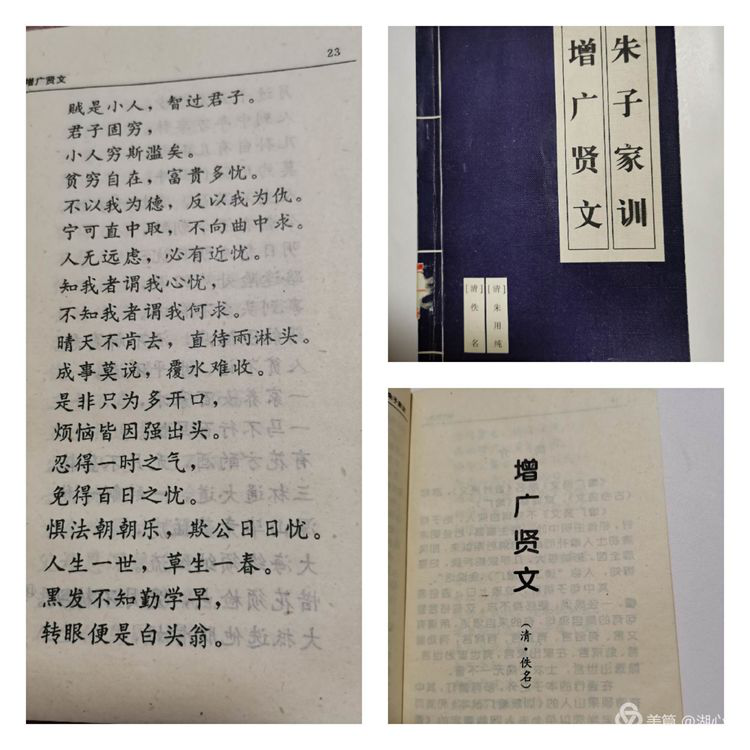 23
增广贤文
贼是小人，智过君子。
君子固穷，
小人穷斯滥矣。
贫穷自在，富贵多忧。
不以我为德，反以我为仇。
宁可直中取，不向曲中求。
人无远虑，必有近忧。
知我者谓我心忧，
不知我者谓我何求。
晴天不肯去，直待雨淋头。
成事莫说，覆水难收。
是非只为多开口，
烦恼皆因强出头。
忍得一时之气，
免得百日之忧。
惧法朝朝乐，欺公日日忧。
人生一世，草生一春。
黑发不知勤学早，
转眼便是白头翁。
朱子家训
增广贤文
[清]朱用纯
[清]佚名
增广贤文
（清·佚名）
美篇 @湖心